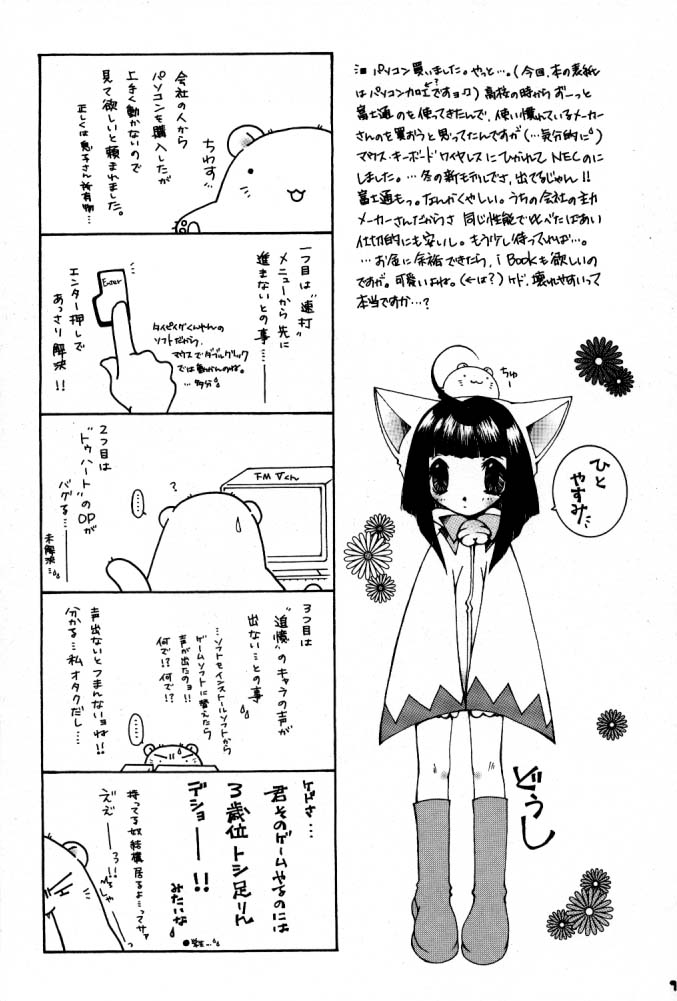 パソコン買いました。やっと…。(今回、本の表紙
はパソコン加工ですョ？)高校の時からずーっと
富士通のを使ってきたんで、使い慣れているメーカー
さんのを買おうと思ってたんですが(…気分的に)
マウス・キーボードワイヤレスにひかれてNECのに
しました。…冬の新モデルでさ、出てるじゃん!!
富士通もっ。なんかくやしい。うちの会社の主力
メーカーさんだからさ 同じ性能で比べたばあい
仕切的にも安いし。もう少し待ってれば…。
…お金に余裕できたら、i Bookも欲しいの
ですが。可愛いよね。(←は？)ケド、壊れやすいって
本当ですか…？
会社の人から
パソコンを購入したが
上手く動かないので
見て欲しいと頼まれました。
正しくは息子さん所有物…
ちわす
一つ目は"連打"
メニューから先に
進まないとの事…
Enter
タイピングくんやんの
ソフトだから、
マウスでダブルクリック
では動かんのね。
…多分
エンター押しで
あっさり解決!!
2つ目は
"トゥハート"のOPが
バグる…
未解決…
……
？
FMVくん
3つ目は
"追憶"のキャラの声が
出ない…との事
…ソフトをインストールソフトから
ゲームソフトに替えたら
声が出たのョ!!
何で!?何で!?
声出ないとつまんないョね!!
分かる…私オタクだし…
……
ケドさ…
君そのゲームやるのには
3歳位トシ足りん
デショ——!!
みたいな
持ってる奴結構居るよってサァ
ええ——ろ!!
ちゅー
ひと
やすみに
どうし
9